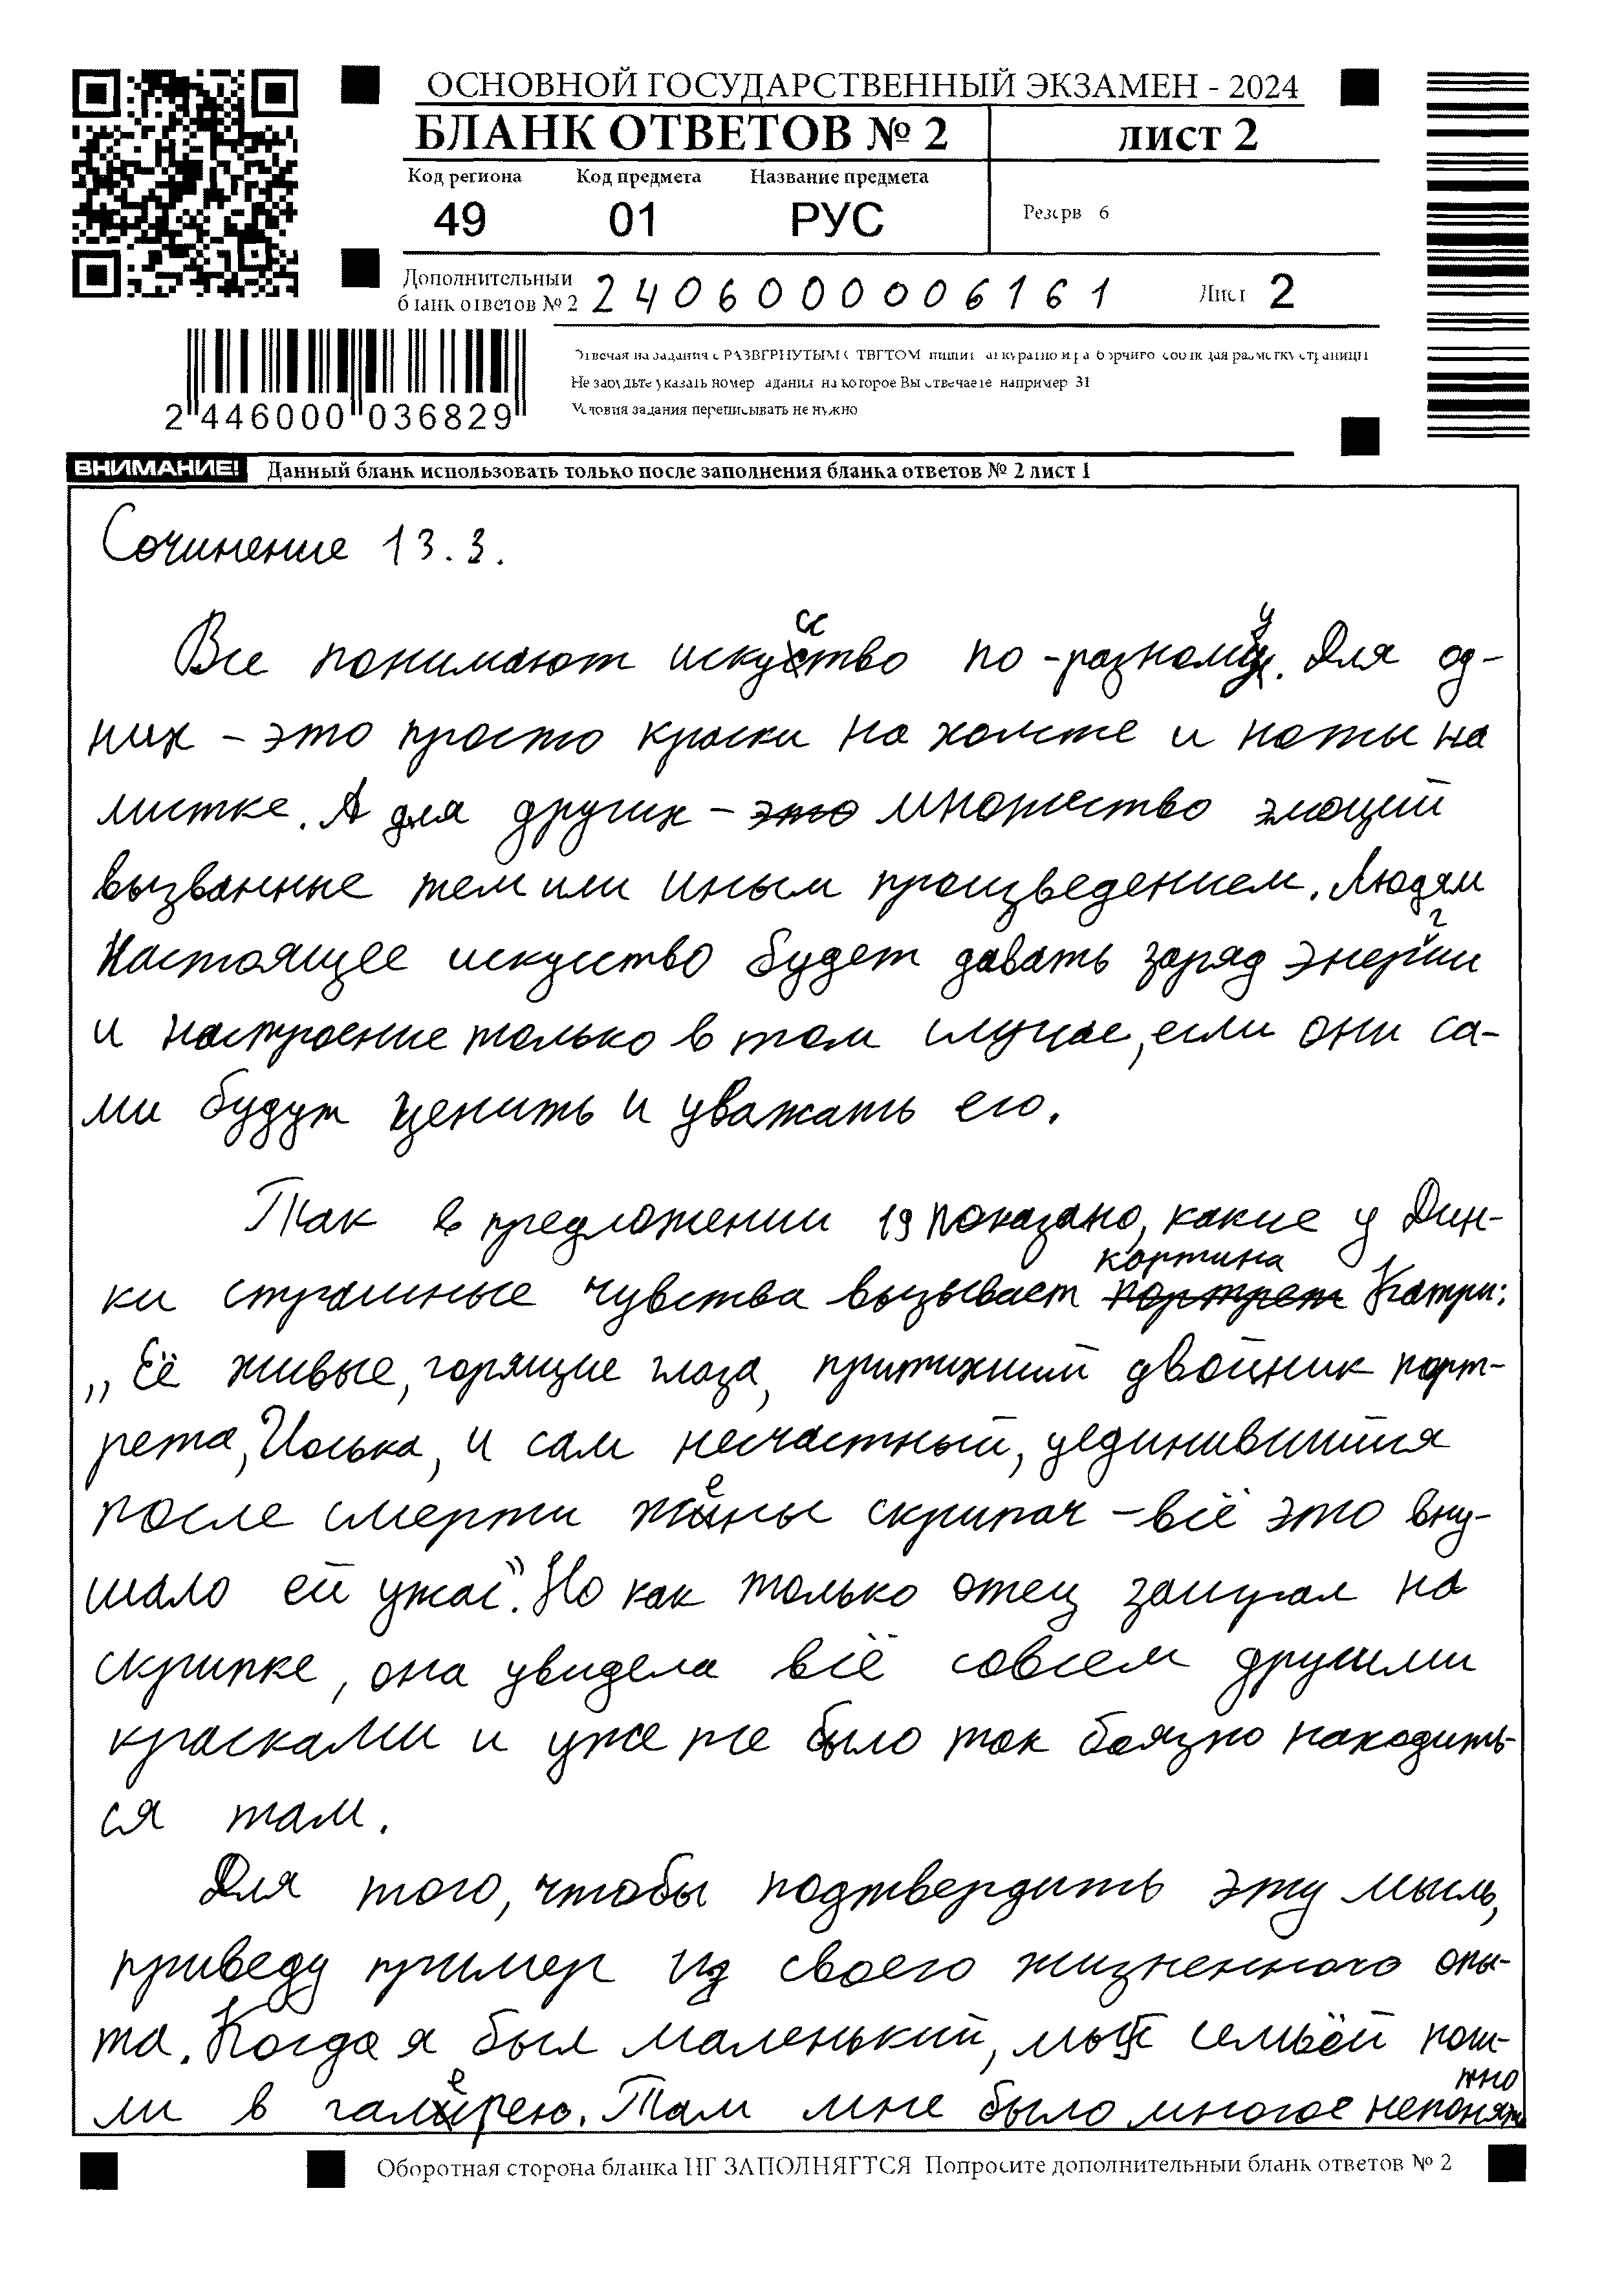 ОСНОВНОЙ ГОСУДАРСТВЕННЫЙ ЭКЗАМЕН - 2024
БЛАНК ОТВЕТОВ № 2
ЛИСТ 2
Код региона Код предмета Название предмета
49 01 РУС
Резерв 6
Дополнительный
бланк ответов № 2
2406000006161
Лист 2
Отвечая на задания с РАЗВЕРНУТЫМ ОТВЕТОМ, пишите аккуратно и разборчиво, соблюдая разметку страницы
Не забудьте указать номер задания, на которое Вы отвечаете, например 31
Условия задания переписывать не нужно
2 446000 036829
ВНИМАНИЕ! Данный бланк использовать только после заполнения бланка ответов № 2 лист 1
Сочинение 13.3.
Все понимают искусство по-разному. Для од-
них – это просто краски на холсте и ноты на
листке. А для других – это множество эмоций
вызванные тем или иным произведением. Людям
настоящее искусство будет давать заряд энергии
и настроение только в том случае, если они са-
ми будут ценить и уважать его.
Так в предложении 19 показано, какие у Дин-
ки страшные чувства вызывает портрет картина Катри:
„Её живые, горящие глаза, притихший двойник порт-
рета, Иоська, и сам несчастный, уединившийся
после смерти жены скрипач – всё это вну-
шало ей ужас”. Но как только отец заиграл на
скрипке, она увидела всё совсем другими
красками и уже не было так боязно находить-
ся там.
Для того, чтобы подтвердить эту мысль,
приведу пример из своего жизненного опы-
та. Когда я был маленький, мы семьёй пош-
ли в галерею. Там мне было многое непонятно
Оборотная сторона бланка НЕ ЗАПОЛНЯЕТСЯ Попросите дополнительный бланк ответов № 2